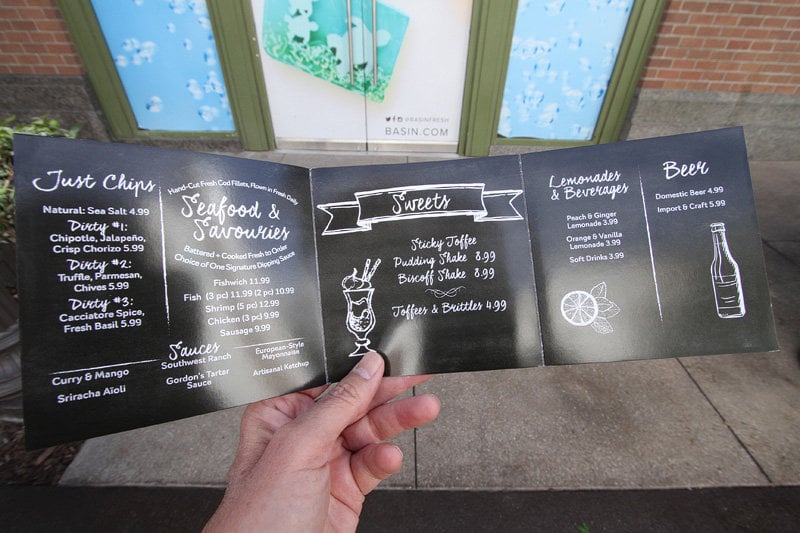 @BASINFRESH
BASIN.COM
Just Chips
Natural: Sea Salt 4.99
Dirty #1:
Chipotle, Jalapeño,
Crisp Chorizo 5.99
Dirty #2:
Truffle, Parmesan,
Chives 5.99
Dirty #3:
Cacciatore Spice,
Fresh Basil 5.99
Hand-Cut Fresh Cod Fillets, Flown in Fresh Daily
Seafood &
Savouries
Battered + Cooked Fresh to Order
Choice of One Signature Dipping Sauce
Fishwich 11.99
Fish (3 pc) 11.99 (2 pc) 10.99
Shrimp (5 pc) 12.99
Chicken (3 pc) 9.99
Sausage 9.99
Sauces
Curry & Mango
Sriracha Aïoli
Southwest Ranch
Gordon's Tarter
Sauce
European-Style
Mayonnaise
Artisanal Ketchup
Sweets
Sticky Toffee
Pudding Shake 8.99
Biscoff Shake 8.99
Toffees & Brittles 4.99
Lemonades
& Beverages
Peach & Ginger
Lemonade 3.99
Orange & Vanilla
Lemonade 3.99
Soft Drinks 3.99
Beer
Domestic Beer 4.99
Import & Craft 5.99